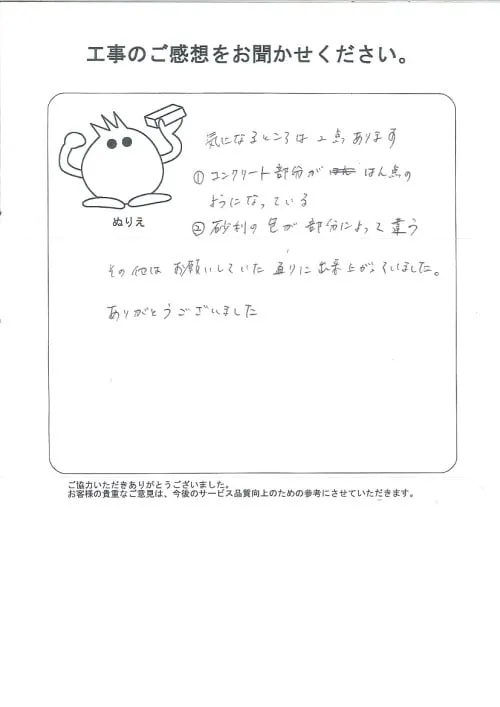 工事のご感想をお聞かせください。
気になるところは2点あります
① コンクリート部分が はん点の
ようになっている
② 砂利の色が部分によって違う
ぬりえ
その他は お願いしていた通りに出来上がっていました。
ありがとうございました
ご協力いただきありがとうございました。
お客様の貴重なご意見は、今後のサービス品質向上のための参考にさせていただきます。